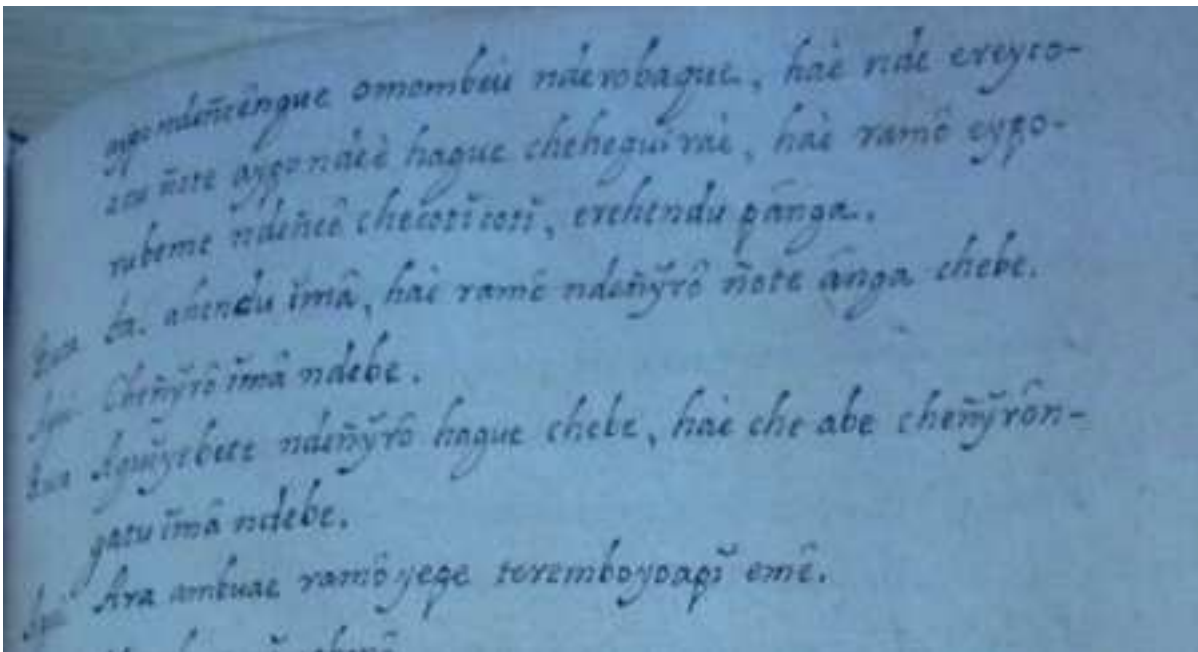 aypo ndeñeêngue omombeù nderobaque, haè nde ereyco-
ñote aypo ndeè hague cheheguí raè, haè ramô aypo-
rubeme ndeñeê checotĭcotĭ, erehendu pânga.
ta. ahendu ĭmâ, haè ramô ndeñỹrô ñote ânga chebe.
Cheñỹrô ĭmâ ndebe.
Aguĭyebete ndeñỹrô hague chebe, haè che abe cheñỹrôn-
gatu ĭmâ ndebe.
Ara ambuae ramô yepe teremboyoapĭ emê.